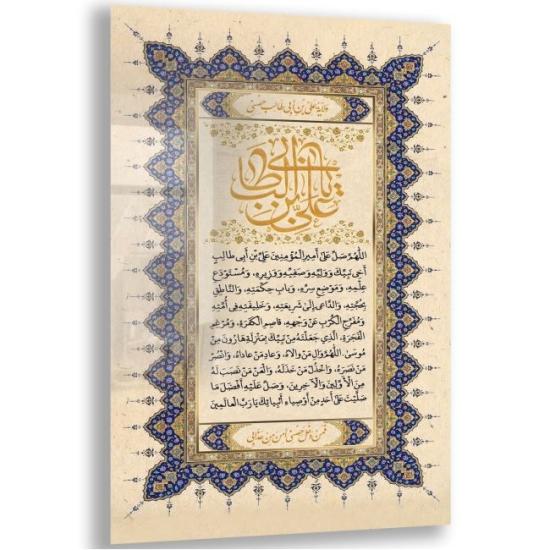 ولاية علي بن أبي طالب حصني
علي بن ابي طالب
اللهم صل على أمير المؤمنين علي بن أبي طالب
أخي نبيك ووليه وصفيه ووزيره، ومستودع
علمه، وموضع سره، وباب حكمته، والناطق
بحجته، والداعي إلى شريعته، وخليفته في أمته
ومفرج الكرب عن وجهه، قاصم الكفرة، ومرغم
الفجرة، الذي جعلته من نبيك بمنزلة هارون من
موسى، اللهم وال من والاه، وعاد من عاداه، وانصر
من نصره، واخذل من خذله، والعن من نصب له
من الأولين والآخرين، وصل عليه أفضل ما
صليت على أحد من أوصياء أنبيائك يا رب العالمين
فمن دخل حصني أمن من عذابي